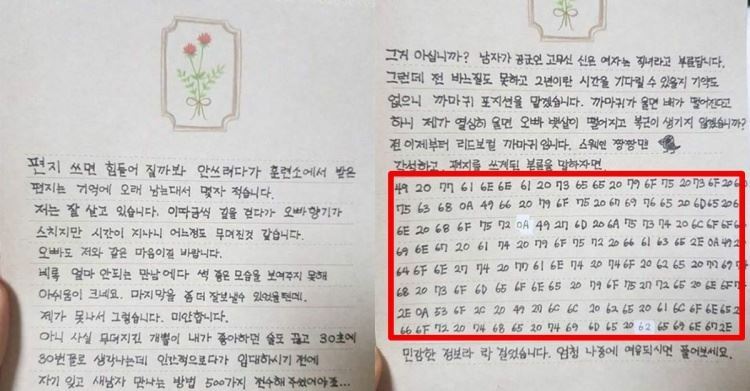 편지 쓰면 힘들어 질까봐 안쓰려다가 훈련소에서 받은
편지는 기억에 오래 남는대서 몇자 적습니다.
저는 잘 살고 있습니다. 이따금씩 길을 걷다가 오빠향기가
스치지만 시간이 지나니 어느정도 무뎌진것 같습니다.
오빠도 저와 같은 마음이길 바랍니다.
비록 얼마 안되는 만남에다 썩 좋은 모습을 보여주지 못해
아쉬움이 크네요. 마지막을 좀 더 잘보낼수 있었을텐데.
제가 못나서 그랬습니다. 미안합니다.
아니 사실 무뎌지긴 개뿔이 내가 좋아하던 술도 끊고 30초에
30번꼴로 생각나는데 인간적으로다가 입대하시기 전에
자기 잊고 새남자 만나는 방법 500가지 전수해 주셨어야죠...
그거 아십니까? 남자가 공군인 고무신 신은 여자는 직녀라고 부릅답니다.
그런데 전 바느질도 못하고 2년이란 시간을 기다릴 수 있을지 기약도
없으니 까마귀 포지션을 맡겠습니다. 까마귀가 울면 배가 떨어진다고
하니 제가 열심히 울면 오빠 뱃살이 떨어지고 복근이 생기지 않겠습니까?
전 이제부터 리드보컬 까마귀입니다. 스웩쩐 짱짱맨
간섭하고, 편지를 쓰게된 본론을 말하자면,
49 20 77 61 6E 6E 61 20 73 65 65 20 79 6F 75 20 73 6F 20
75 63 68 0A 49 66 20 79 6F 75 20 67 69 76 65 20 6D 65 20
6E 20 68 6F 75 72 0A 49 27 6D 20 6A 75 73 74 20 6C 6F 6F
69 6E 67 20 61 74 20 79 6F 75 72 20 66 61 63 65 2E 0A 49
64 6F 6E 27 74 20 77 61 6E 74 20 74 6F 20 62 65 20 77 69
68 20 73 6F 6D 65 6F 6E 65 20 79 6F 75 27 72 65 20 6E 6F
2E 0A 53 6F 2C 20 49 27 6C 6C 20 62 65 20 61 6C 6F 6E 65
66 6F 72 20 74 68 65 20 74 69 6D 65 20 62 65 69 6E 67 2E
민감한 정보라 락 걸었습니다. 엄청 나중에 여유되시면 풀어보세요.